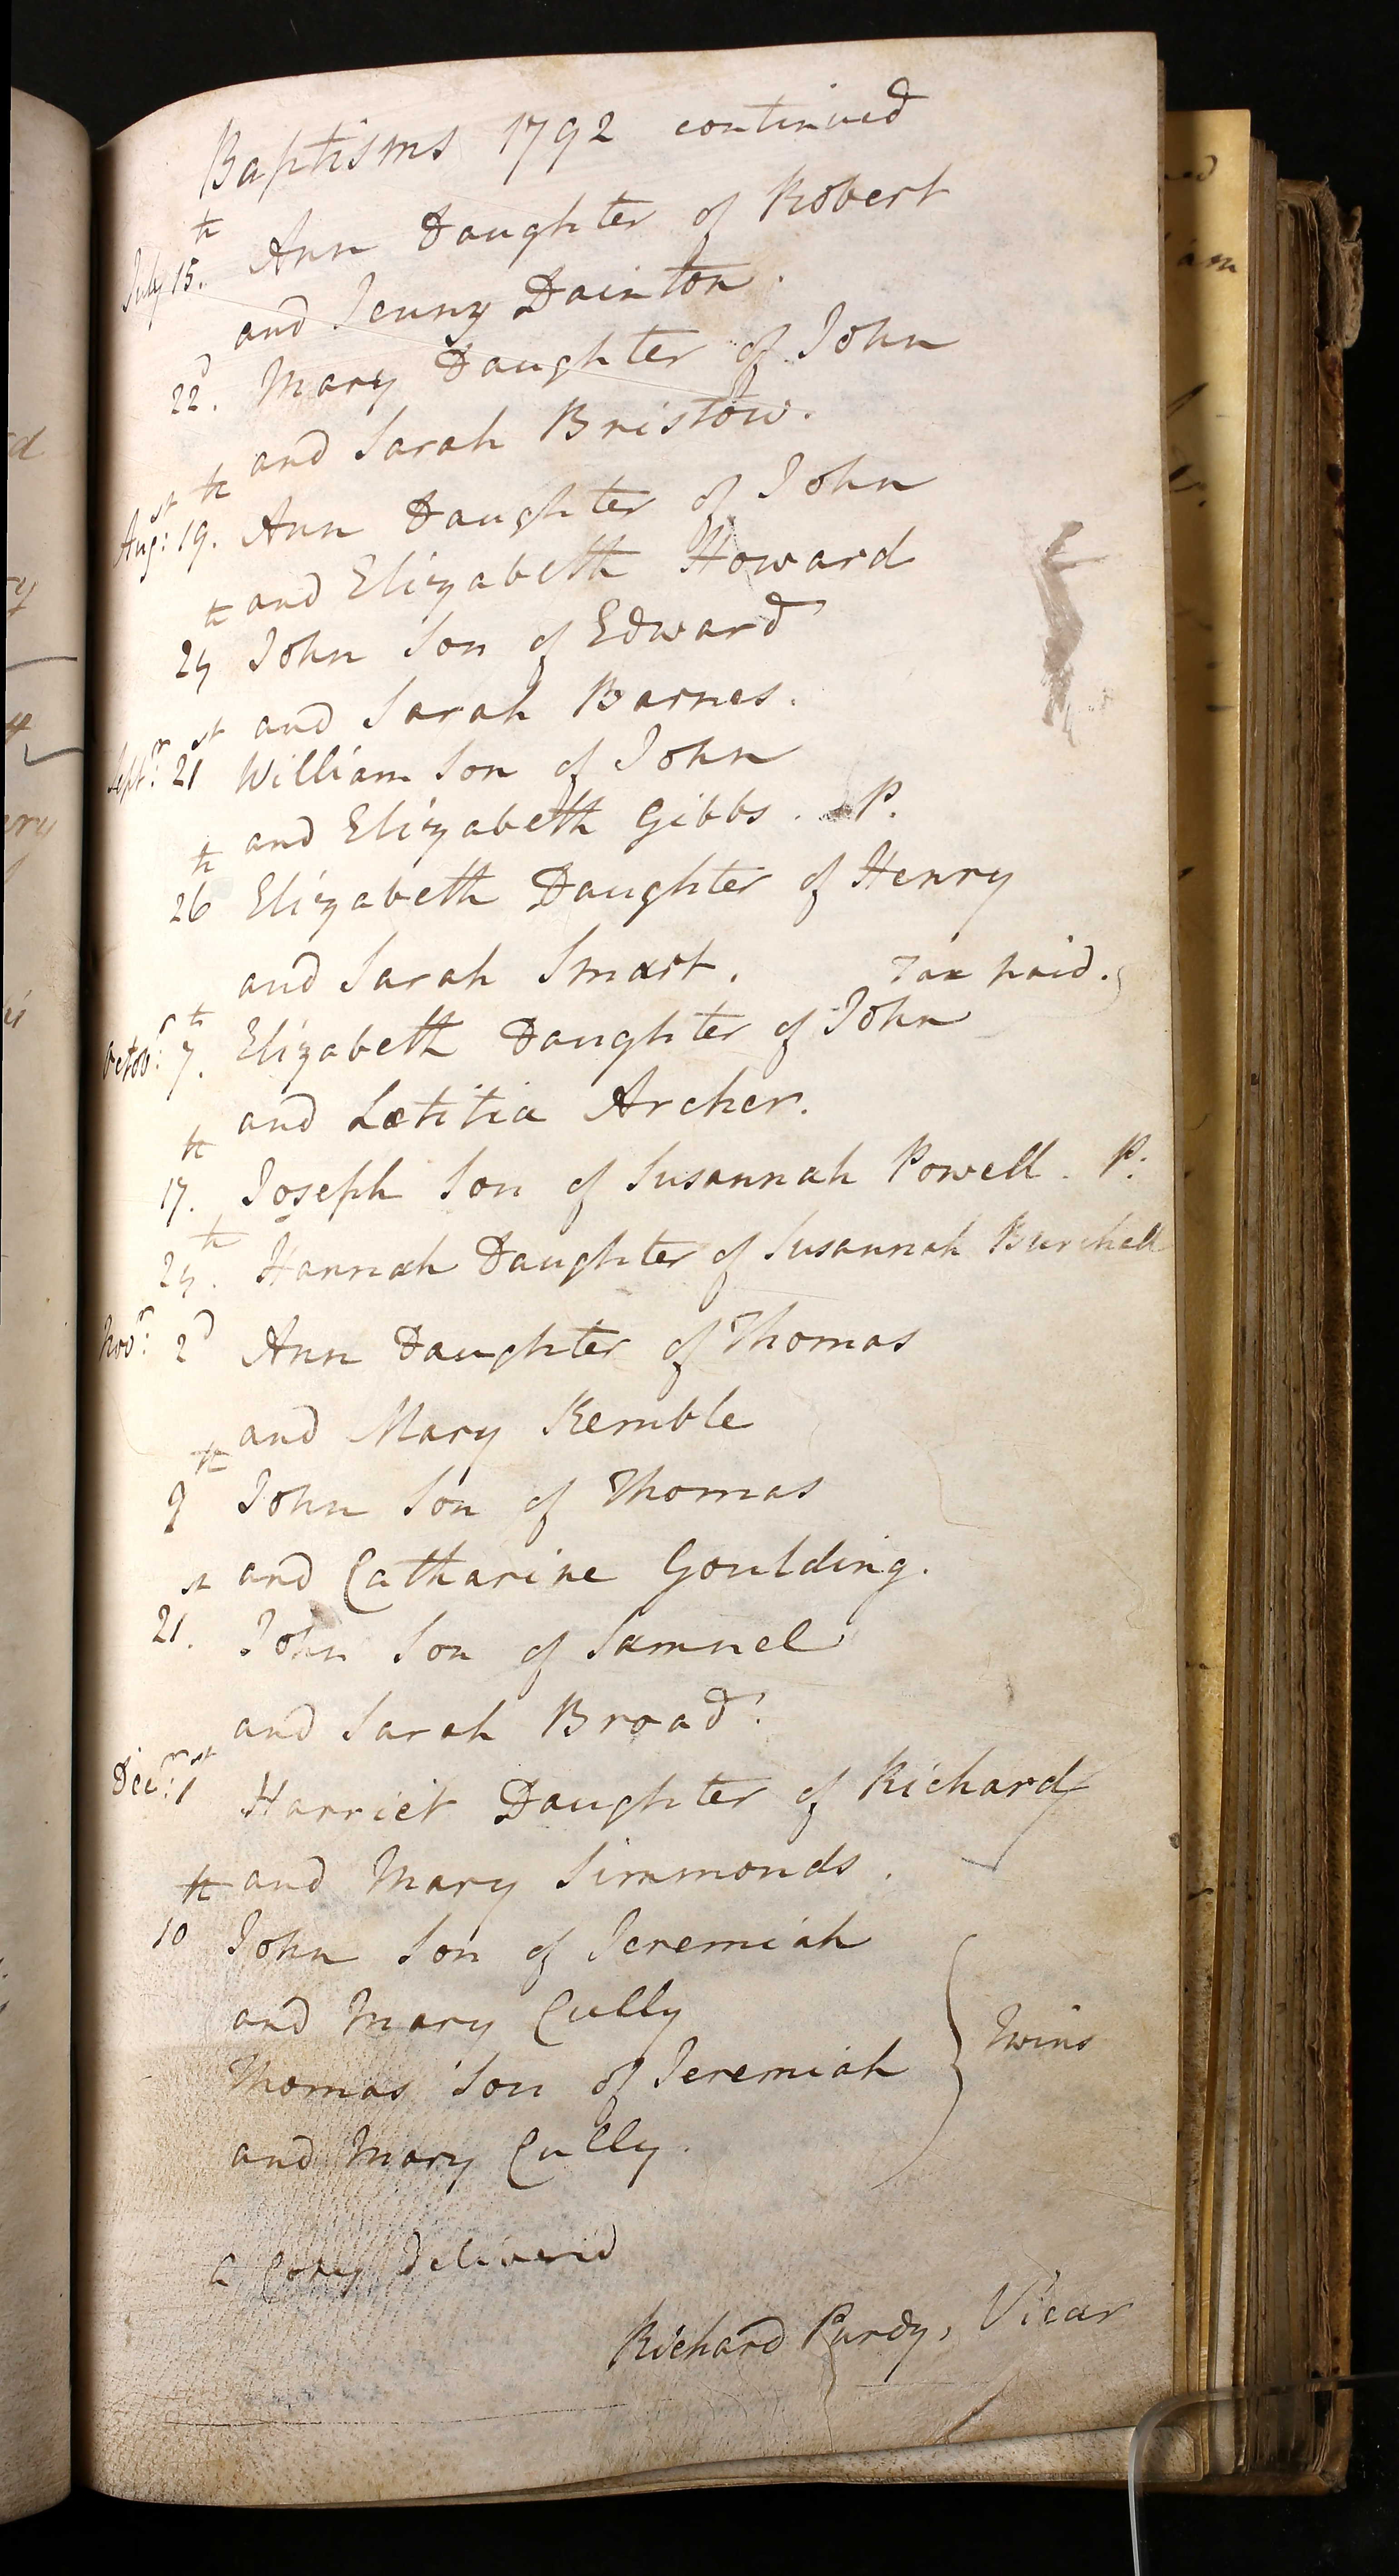 Baptisms 1792 continued
July 15.th Ann Daughter of Robert
and Jenny Dainton.
22.d Mary Daughter of John
and Sarah Bristow.
Augst: 19.th Ann Daughter of John
and Elizabeth Howard
John Son of Edward
and Sarah Barnes.
Septr: 21st William Son of John
and Elizabeth Gibbs. P.
26th Elizabeth Daughter of Henry
and Sarah Smart. Tax paid.
Octobr: 7.th Elizabeth Daughter of John
and Lætitia Archer.
17.th Joseph Son of Susannah Powell. P.
Hannah Daughter of Susannah Burchell
Novr: 2d Ann Daughter of Thomas
and Mary Kemble
John Son of Thomas
and Catharine Goulding.
21.st John Son of Samuel
and Sarah Broad.
Decr: 1st Harriet Daughter of Richard
and Mary Simmonds.
10th John Son of Jeremiah
and Mary Cully
Twins
Thomas Son of Jeremiah
and Mary Cully.
a Copy Deliverid
Richard Purdy, Vicar